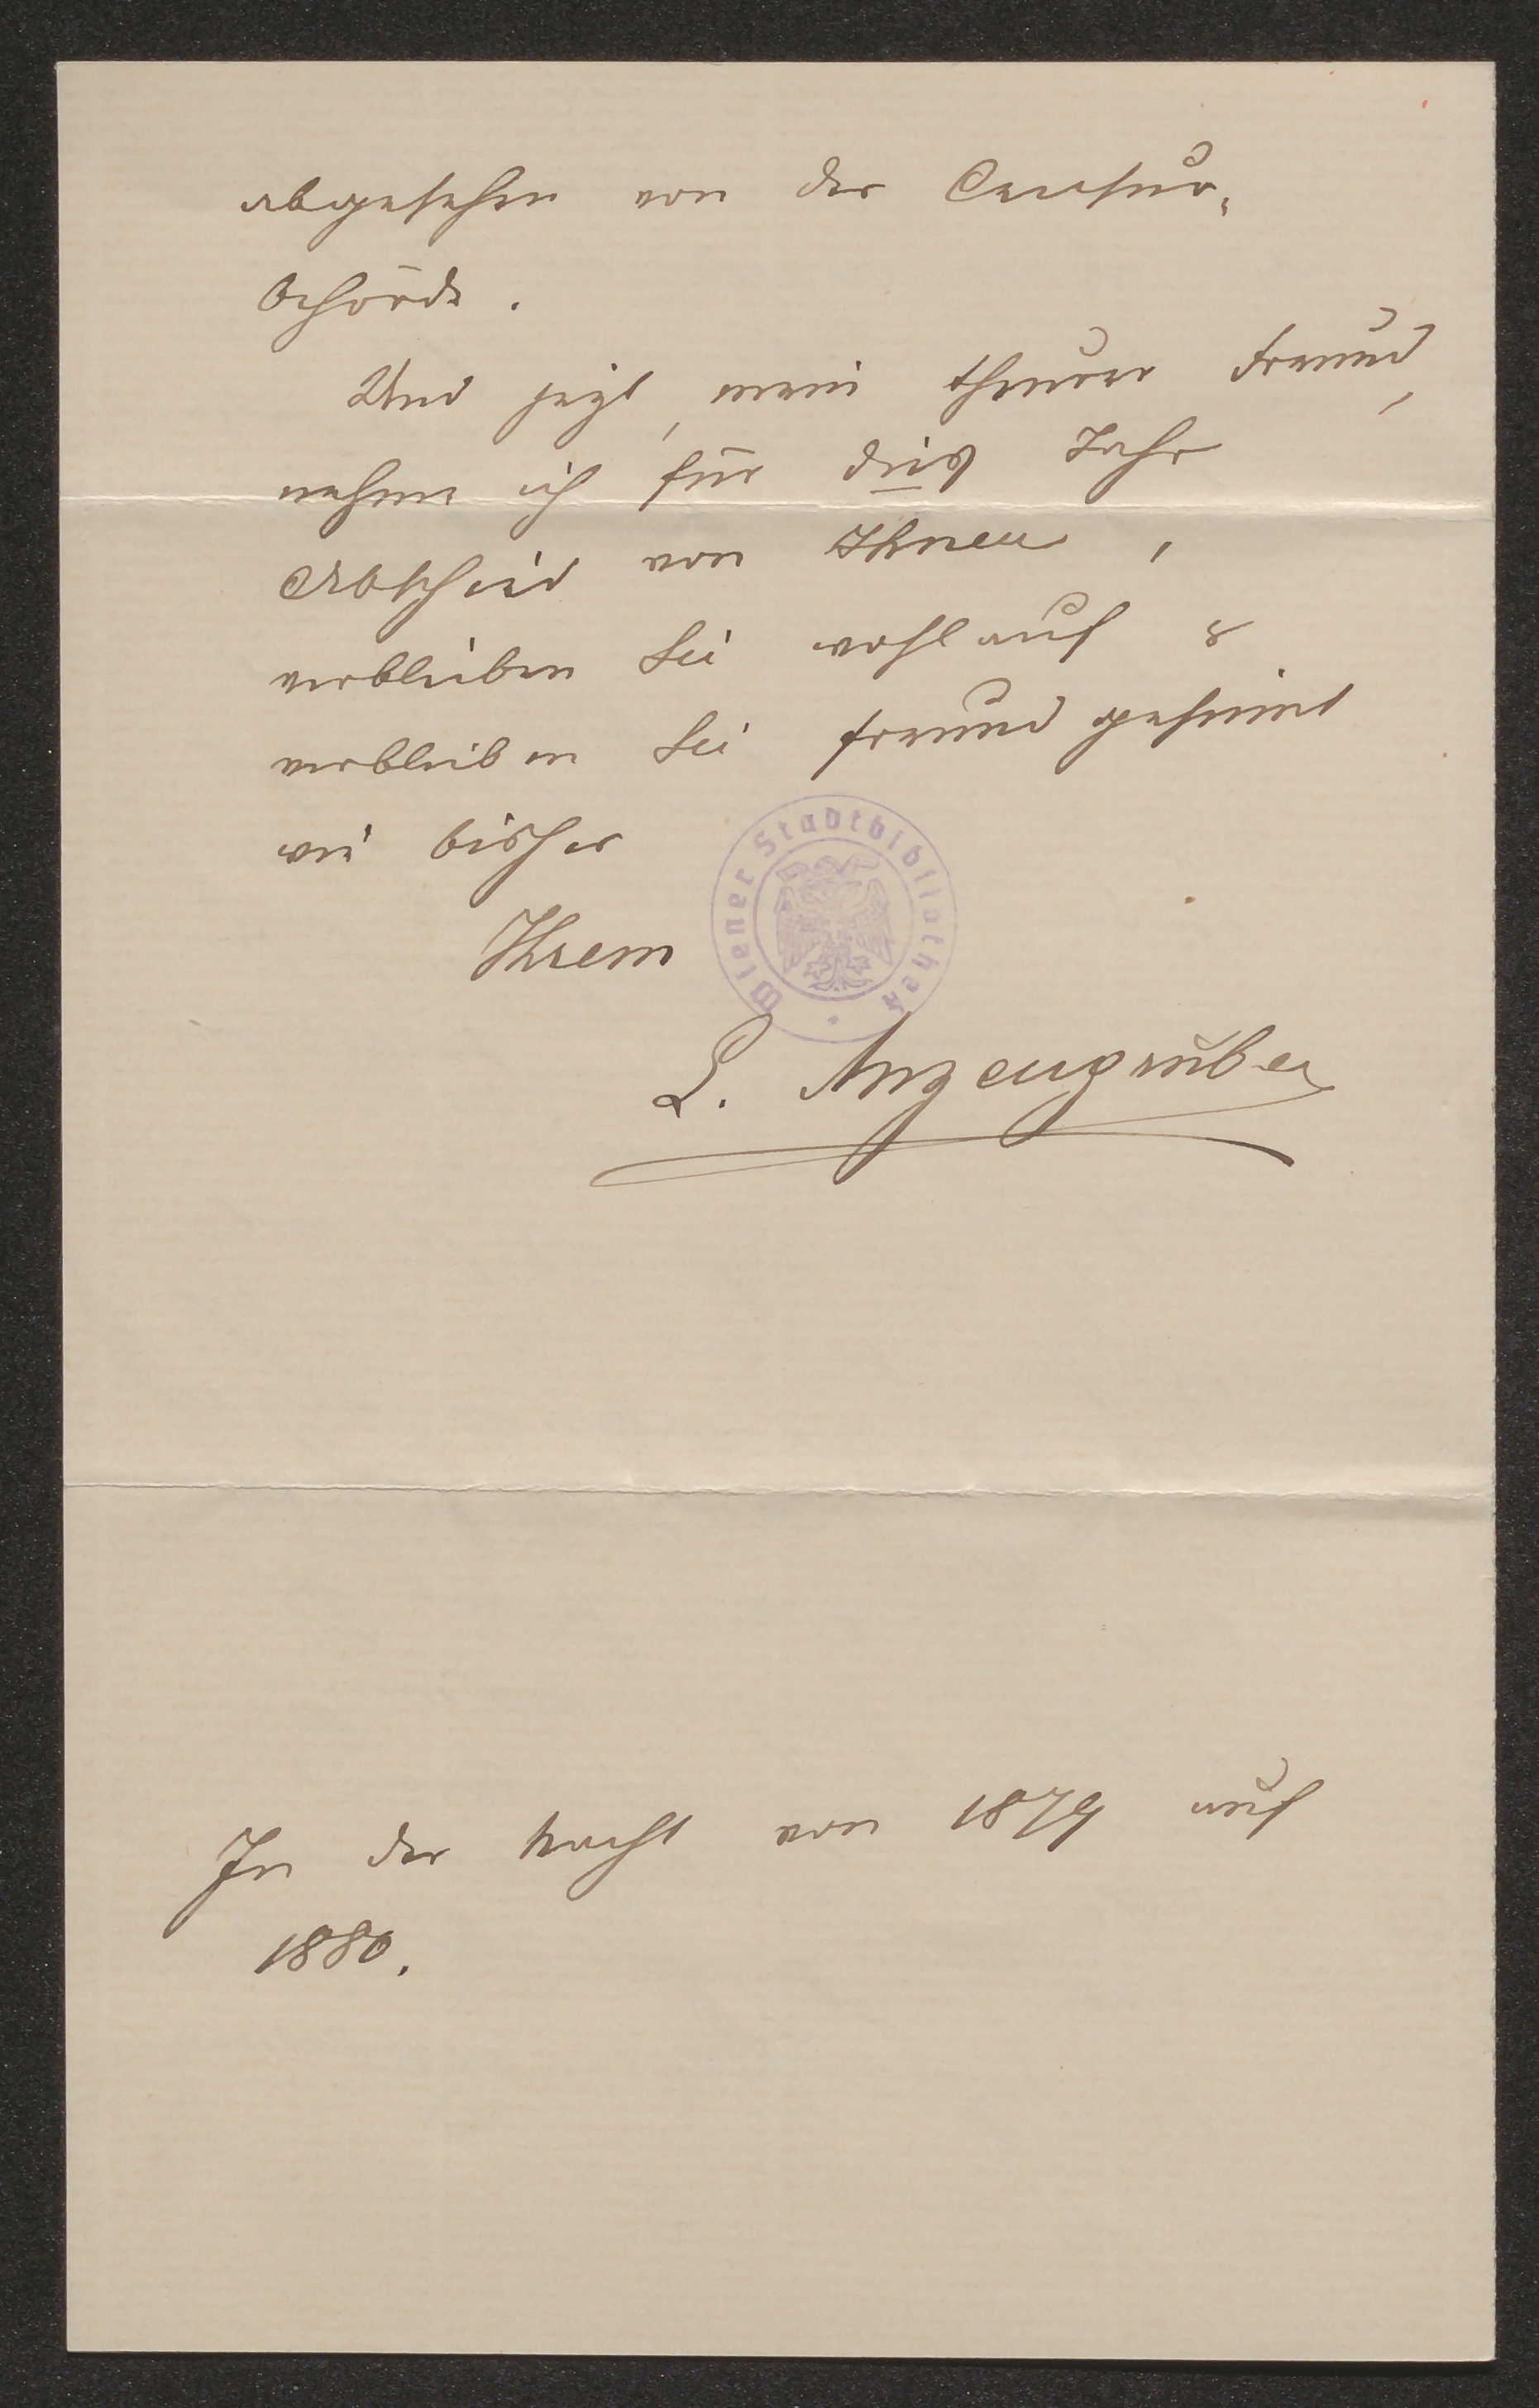 abgesehen von der Censur-
behörde.
Und jezt, mein theurer Freund,
nehme ich für dies Jahr
Abschied von Ihnen,
verbleiben Sie wohlauf &
verbleiben Sie freund gesinnt
wie bisher
Ihrem
Wiener Stadtbibliothek
L. Anzengruber
In der Nacht von 1879 auf
1880.